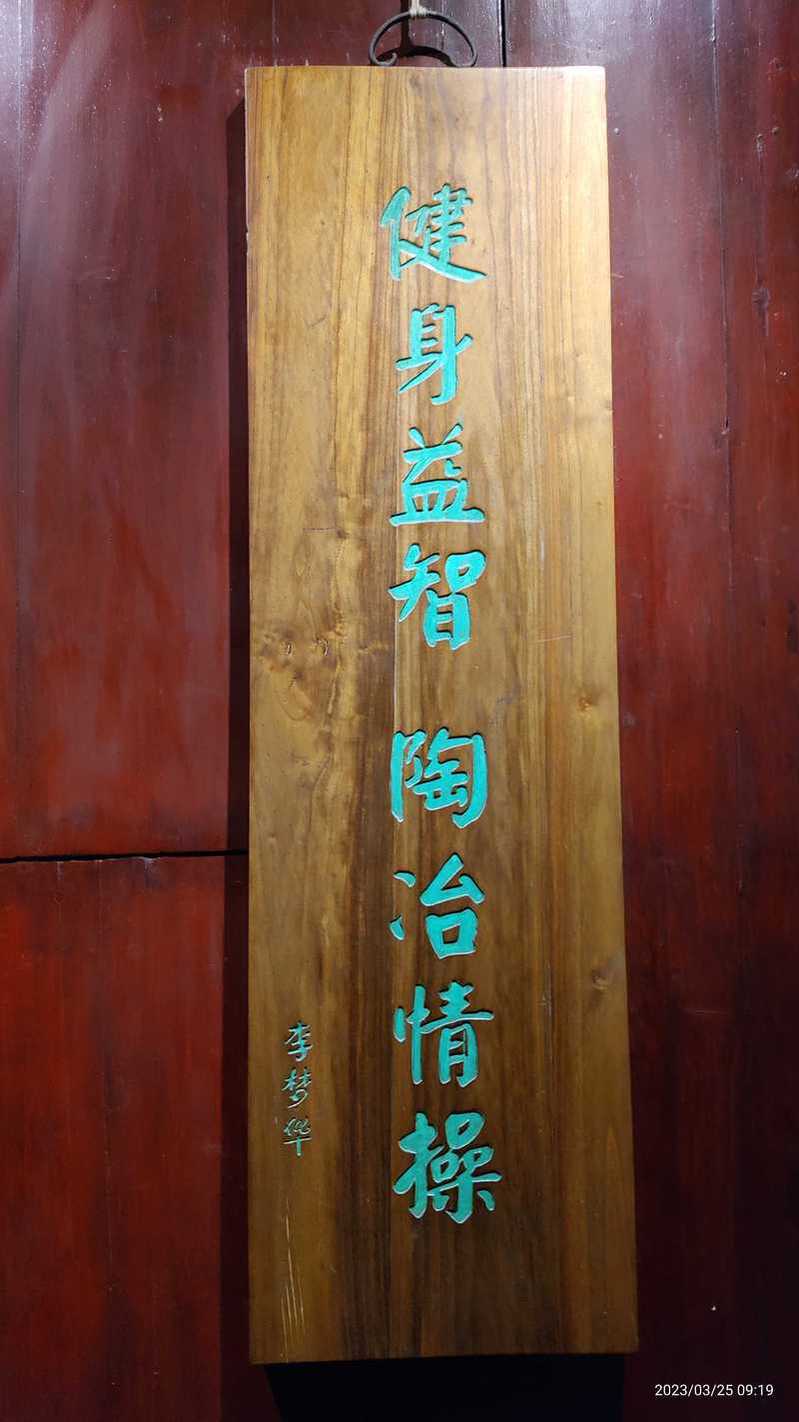 健身益智 陶冶情操
李梦华
2023/03/25 09:19